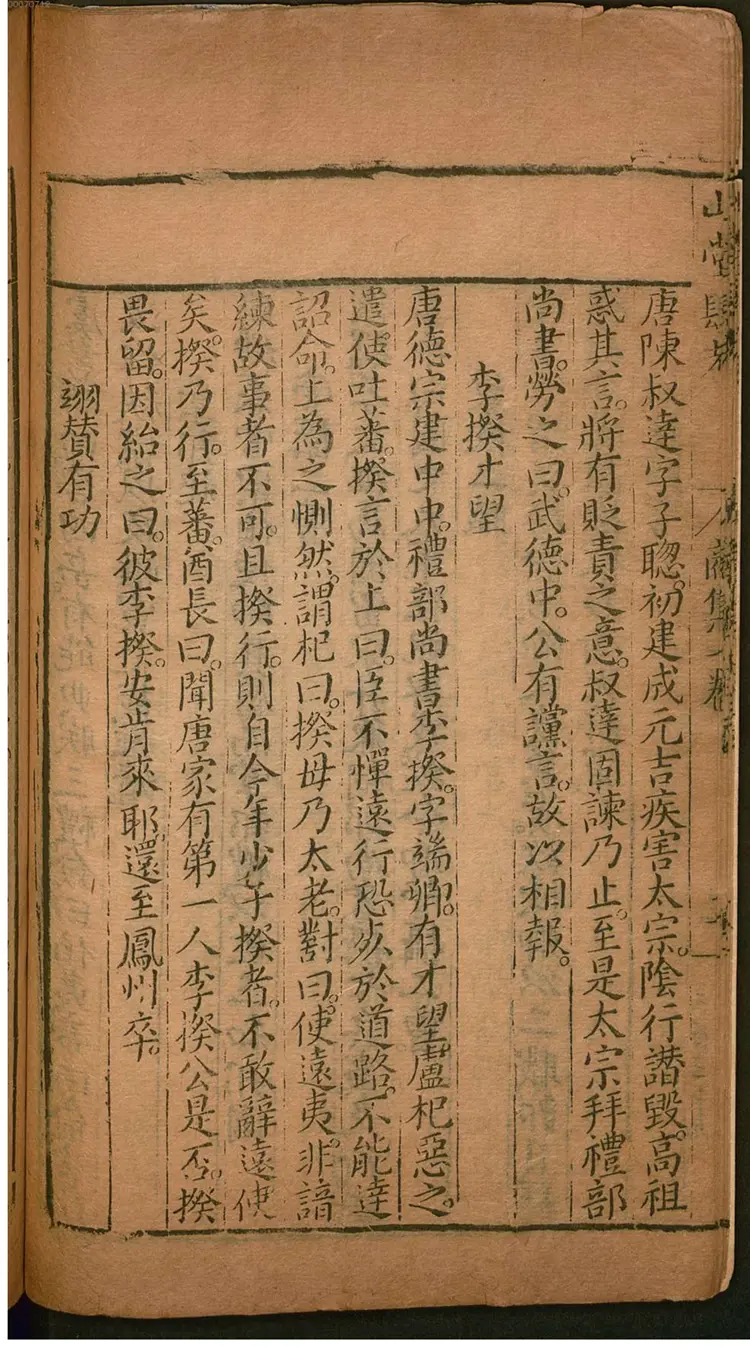 山堂肆考
唐陳叔達字子聦。初建成元吉疾害太宗。陰行譖毀。高祖
惑其言。將有貶責之意。叔達固諫乃止。至是太宗拜禮部
尚書。勞之曰。武德中。公有讜言。故以相報。
李揆才望
唐德宗建中中。禮部尚書李揆。字端卿。有才望。盧杞惡之。
遣使吐蕃。揆言於上曰。臣不憚遠行。恐死於道路。不能達
詔命。上為之惻然。謂杞曰。揆毋乃太老。對曰。使遠夷。非諳
練故事者不可。且揆行。則自今年少于揆者。不敢辭遠使
矣。揆乃行。至蕃。酋長曰。聞唐家有第一人李揆公是否。揆
畏留。因紿之曰。彼李揆。安肯來耶。還至鳳州卒。
翊贊有功
00070718